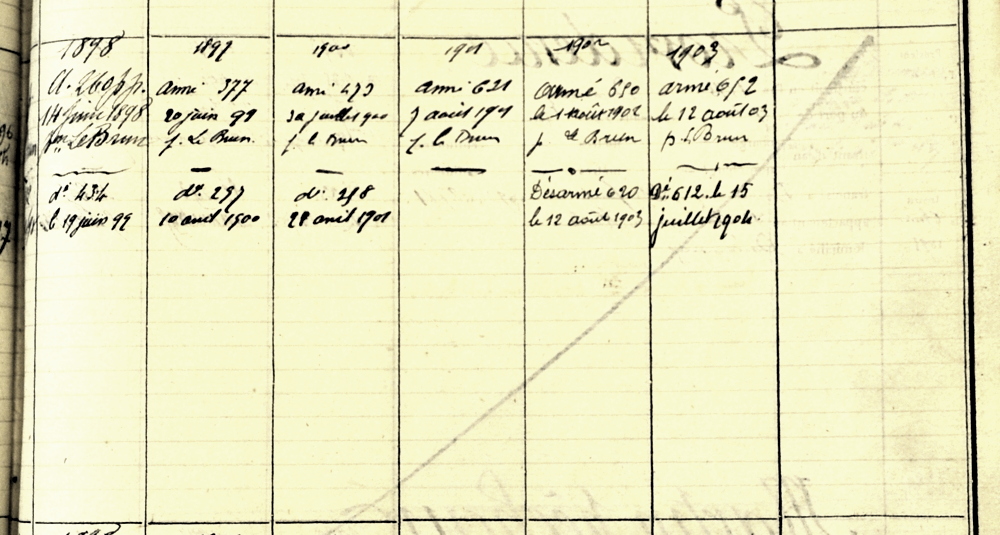 1898
A. 260 p.p.
14 juin 1898
Le Brun
do 434
le 19 juin 99
1899
armé 377
20 juin 99
p. Le Brun
do 297
10 avril 1900
1900
armé 473
30 juillet 1900
p. le Brun
do 218
28 avril 1901
1901
armé 621
7 août 1901
p. le Brun
1902
armé 680
le 1 Août 1902
p. le Brun
Désarmé 620
le 12 août 1903
1903
armé 652
le 12 août 03
p. le Brun
Dé. 612. le 15
juillet 1904